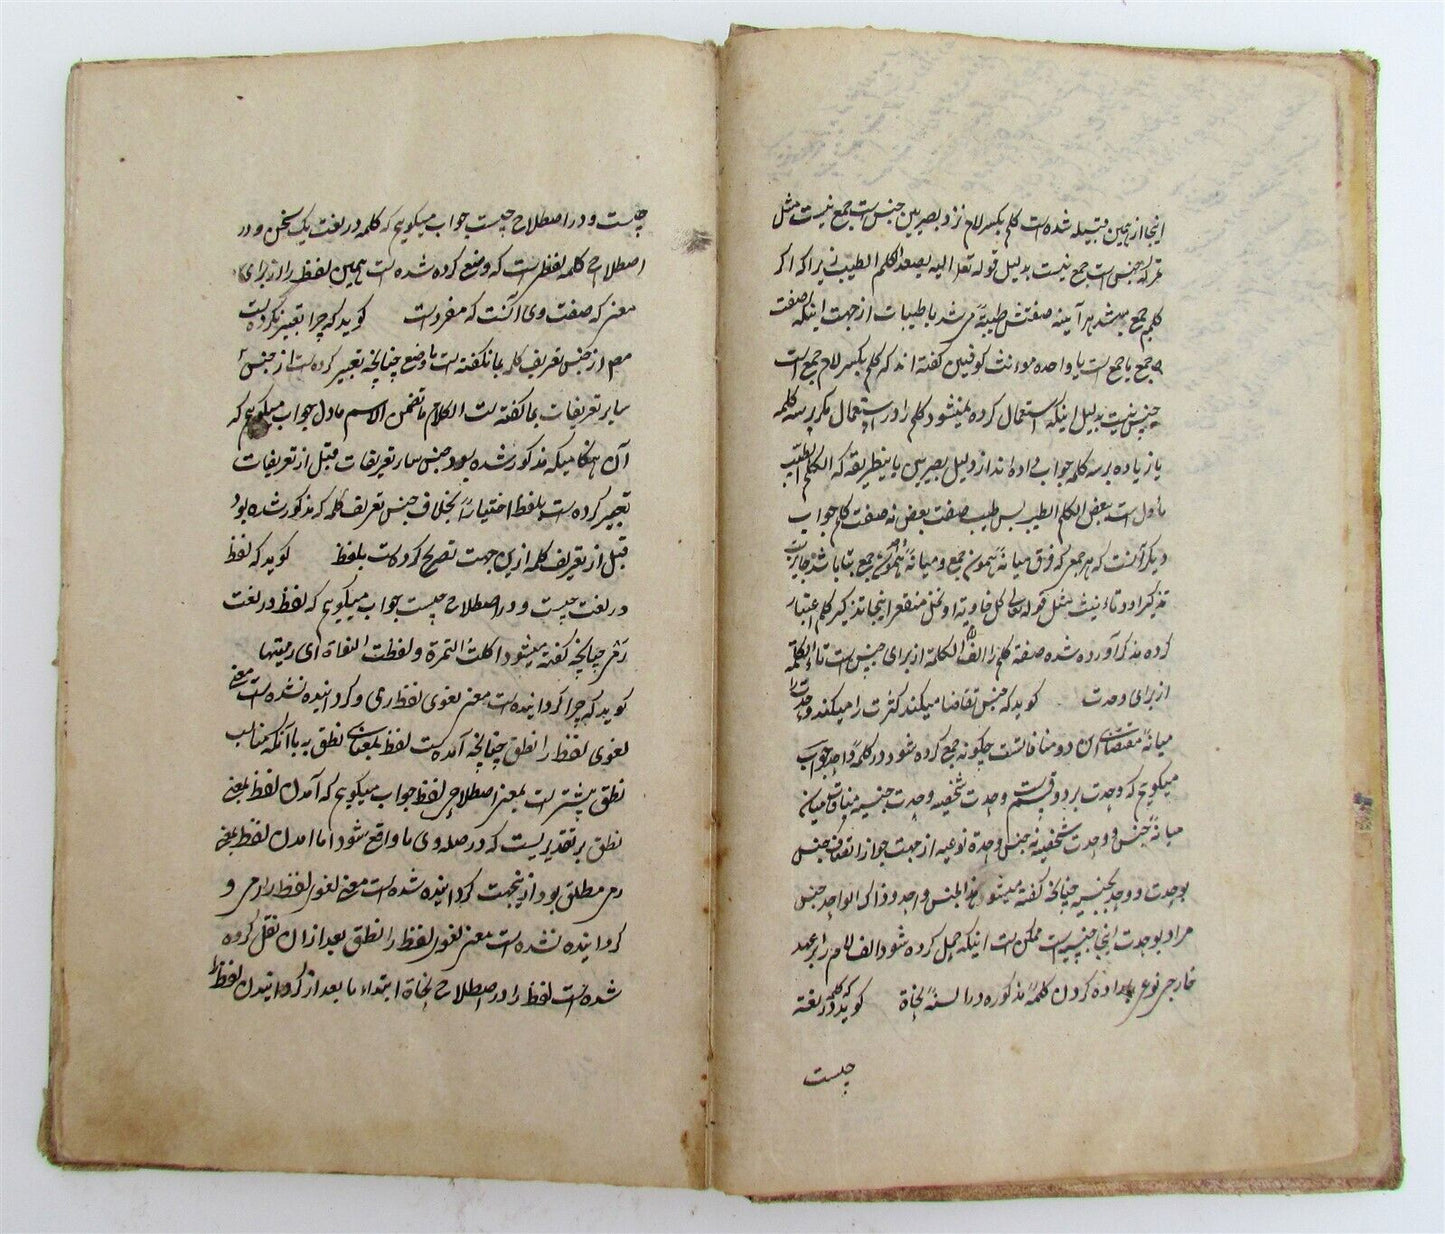 اینجا از همین قبیله شده است کلم بکسر لام نزد بصریین جنس است جمع نیست مثل
تمر که جنس است جمع نیست بدلیل قوله تعالی الیه یصعد الکلم الطیب زیرا که اگر
کلم جمع میشد هر آینه صفتش طیبة می شد یا طیبات از جهت اینکه صفت
جمع یا جمع است یا واحده مونث کوفیین گفته اند که کلم بکسر لام جمع است
جنس نیست بدلیل اینکه استعمال کرده نمیشود کلم را در استعمال مگر بر سه کلمه
یا زیاده بر سه کلمه جواب داده اند از دلیل بصریین باینطریقه که الکلم الطیب
مأول است ببعض الکلم الطیب پس طیب صفت بعض نه صفت کلم جواب
دیگر آنست که هر جمعی که فرق میانه جمع و میانه جمع بتا باشد جایز است
تذکیر او و تانیث مثل قوله تعالی نخل خاویة او نخل منقعر اینجا تذکیر کلم اعتبار
کرده مذکر آورده شده صفة کلم را الف لام الکلمة از برای جنس است تاء الکلمة
از برای وحدت گوید که جنس تقاضا میکند کثرت را میکند وحدت را
میانه مقتضای این دو منافاتست چگونه جمع کرده شود در کلمهٔ واحد جواب
میگویم که وحدت بر دو قسمست وحدت شخصیه وحدت جنسیه منافات میان
میانهٔ جنس و وحدت شخصیه نه جنس وحدة نوعیه از جهت جواز اتصاف جنس
بوحدت و وحد بجنسیه چنانچه گفته میشود هذا الجنس واحد و ذاک الواحد جنس
مراد بوحدت اینجا جنسیه است ممکن است اینکه حمل کرده شود الف لام را بر عهد
خارجی نوعی اراده کردن کلمهٔ مذکوره در السنهٔ نحاة گوید که کلمه در لغة
چیست
چیست و در اصطلاح چیست جواب میگویم که کلمه در لغت یک سخن و در
اصطلاح کلمه لفظی است که وضع کرده شده است همین لفظ را از برای
معنی که صفت وی آنست که مفرد است گوید که چرا تعبیر نکرده است
مص از جنس تعریف کلمه بما نگفته است ما وضع چنانچه تعبیر کرده است از جنس
سایر تعریفات بما گفته است الکلام ما تضمن الاسم مادل جواب میگویم که
آن هنگامیکه مذکور شده بود جنس سایر تعریفات قبل از تعریفات
تعبیر کرده است بلفظ اختیاراً بخلاف جنس تعریف کلمه که مذکور شده بود
قبل از تعریف کلمه ازین جهت تصریح کرده است بلفظ گوید که لفظ
در لغت چیست و در اصطلاح چیست جواب میگویم که لفظ در لغت
رمی چنانچه گفته میشود اکلت التمرة و لفظت النواة ای رمیتها
گوید که چرا گردانیده است معنی لغوی لفظ رمی و گردانیده نشده است معنی
لغوی لفظ را نطق چنانچه آمده است لفظ بمعنای نطق به با آنکه مناسب
نطق بیشتر است بمعنی اصطلاحی لفظ جواب میگویم که آمدن لفظ بمعنی
نطق بر تقدیریست که در صله وی ما واقع شود اما آمدن لفظ بمعنی
رمی مطلق بود ازینجهت گردانیده شده است معنی لغوی لفظ را رمی و
گردانیده نشده است معنی لغوی لفظ را نطق بعد از ان نقل کرده
شده است لفظ را در اصطلاح نحاة ابتداء یا بعد از گردانیدن لفظ را